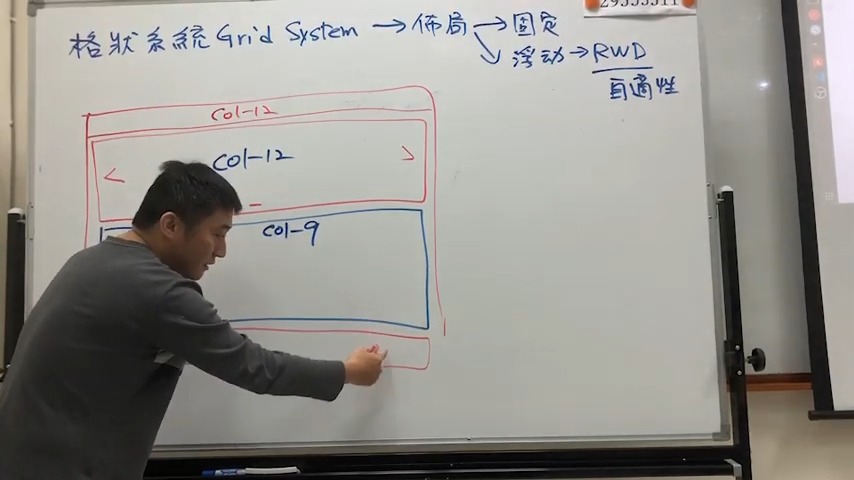 格狀系統 Grid System → 佈局 → 固定
浮動 → RWD
自適性
col-12
col-12
col-9